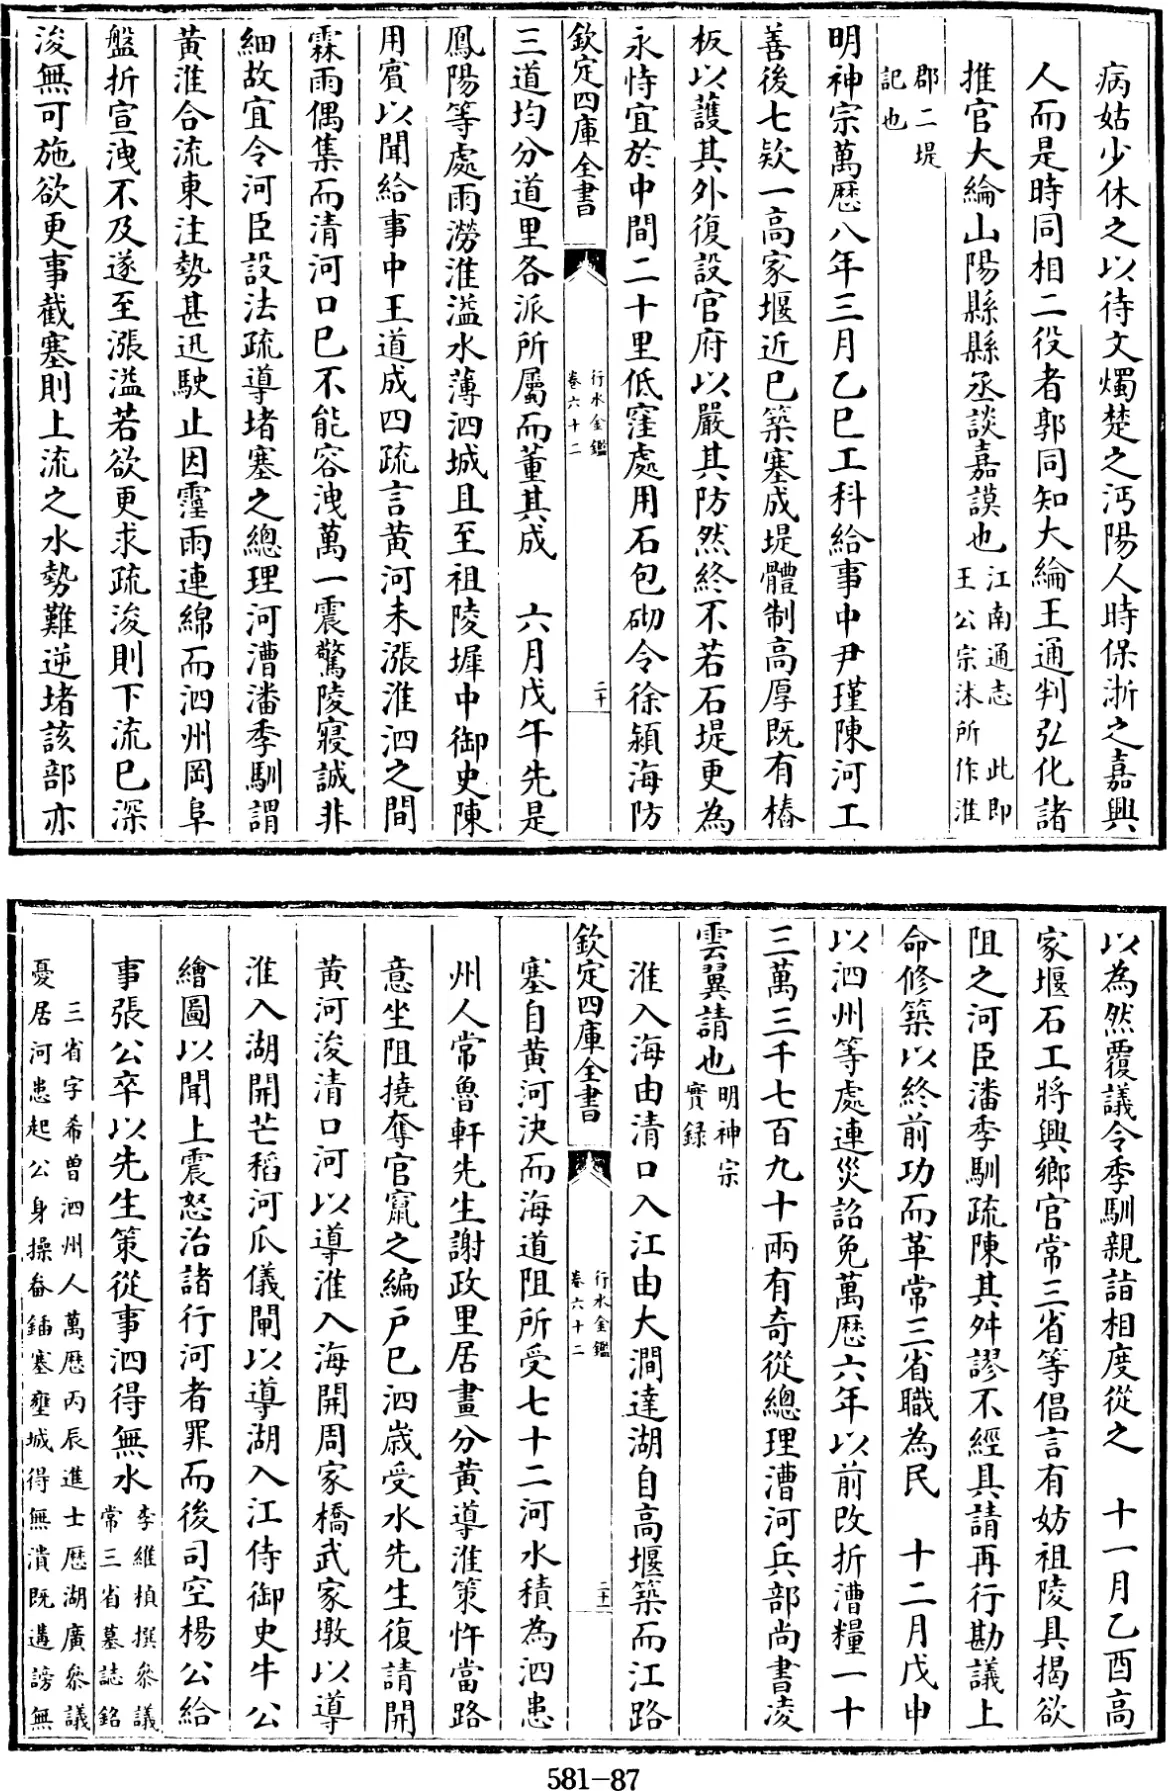 病姑少休之以待文燭楚之沔陽人時保浙之嘉興
人而是時同相二役者郭同知大綸王通判弘化諸
推官大綸山陽縣縣丞談嘉謨也江南通志 此即
王公宗沐所作淮
郡二堤
記也
明神宗萬厯八年三月乙巳工科給事中尹瑾陳河工
善後七欵一高家堰近已築塞成堤體制高厚既有樁
板以護其外復設官府以嚴其防然終不若石堤更為
永恃宜於中間二十里低窪處用石包砌令徐潁海防
欽定四庫全書
行水金鑑
卷六十二
二十
三道均分道里各派所屬而董其成 六月戊午先是
鳳陽等處雨澇淮溢水薄泗城且至祖陵墀中御史陳
用賓以聞給事中王道成四疏言黄河未漲淮泗之間
霖雨偶集而清河口已不能容洩萬一震驚陵寢誠非
細故宜令河臣設法疏導堵塞之總理河漕潘季馴謂
黄淮合流東注勢甚迅駛止因霪雨連綿而泗州岡阜
盤折宣洩不及遂至漲溢若欲更求疏浚則下流已深
浚無可施欲更事截塞則上流之水勢難逆堵該部亦
以為然覆議令季馴親詣相度從之 十一月乙酉高
家堰石工將興鄉官常三省等倡言有妨祖陵具揭欲
阻之河臣潘季馴疏陳其舛謬不經具請再行勘議上
命修築以終前功而革常三省職為民 十二月戊申
以泗州等處連災詔免萬厯六年以前改折漕糧一十
三萬三千七百九十兩有奇從總理漕河兵部尚書凌
雲翼請也明神宗
實録
淮入海由清口入江由大澗達湖自高堰築而江路
欽定四庫全書
行水金鑑
卷六十二
二十一
塞自黄河決而海道阻所受七十二河水積為泗患
州人常魯軒先生謝政里居畫分黄導淮策忤當路
意坐阻撓奪官竄之編户已泗歲受水先生復請開
黄河浚清口河以導淮入海開周家橋武家墩以導
淮入湖開芒稻河瓜儀閘以導湖入江侍御史牛公
繪圖以聞上震怒治諸行河者罪而後司空楊公給
事張公卒以先生策從事泗得無水李維楨撰參議
常三省墓誌銘
三省字希曾泗州人萬厯丙辰進士厯湖廣參議
憂居河患起公身操畚鍤塞壅城得無潰既遘謗無
581-87